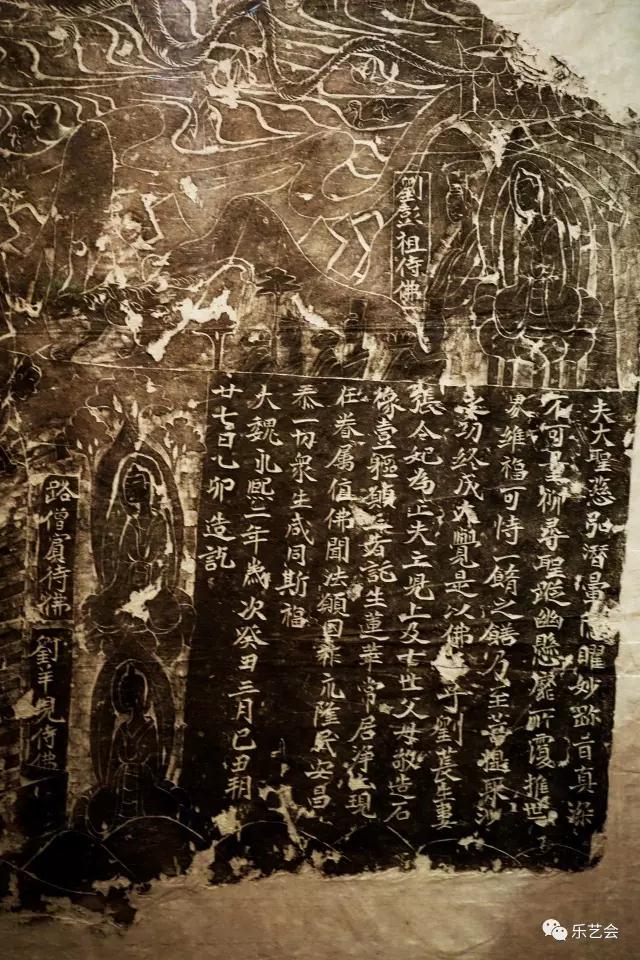 劉彭祖侍佛
夫大聖慈弘潛暈隱曜妙跡首真深
不可量聊尋聖蹤幽懸靡所覆推世
界維福可恃一餚之饍乃至菩提聚沙
功終戊是以佛子劉萇生妻
張令妃為亡夫亡兒上及七世父母敬造石
像壹軀願亡者託生蓮華常居淨法現
在眷屬值佛聞法願國祚永隆民安昌
忝一切衆生咸同斯福
大魏永熙二年歲次癸丑三月己丑朔
廿七日乙卯造訖
路僧賓侍佛
劉羊兒侍佛
乐艺会